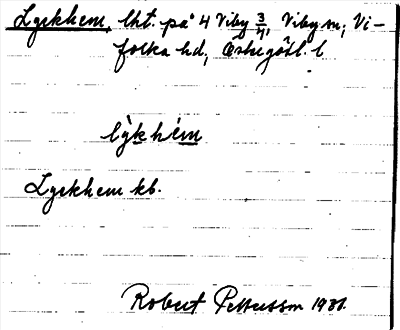 Lyckhem, lht. på 4 Viby 3/4, Viby sn, Vi-
folka hd, Östergötl. l
lỳkhém
Lyckhem kb.
Robert Pettersson 1931.